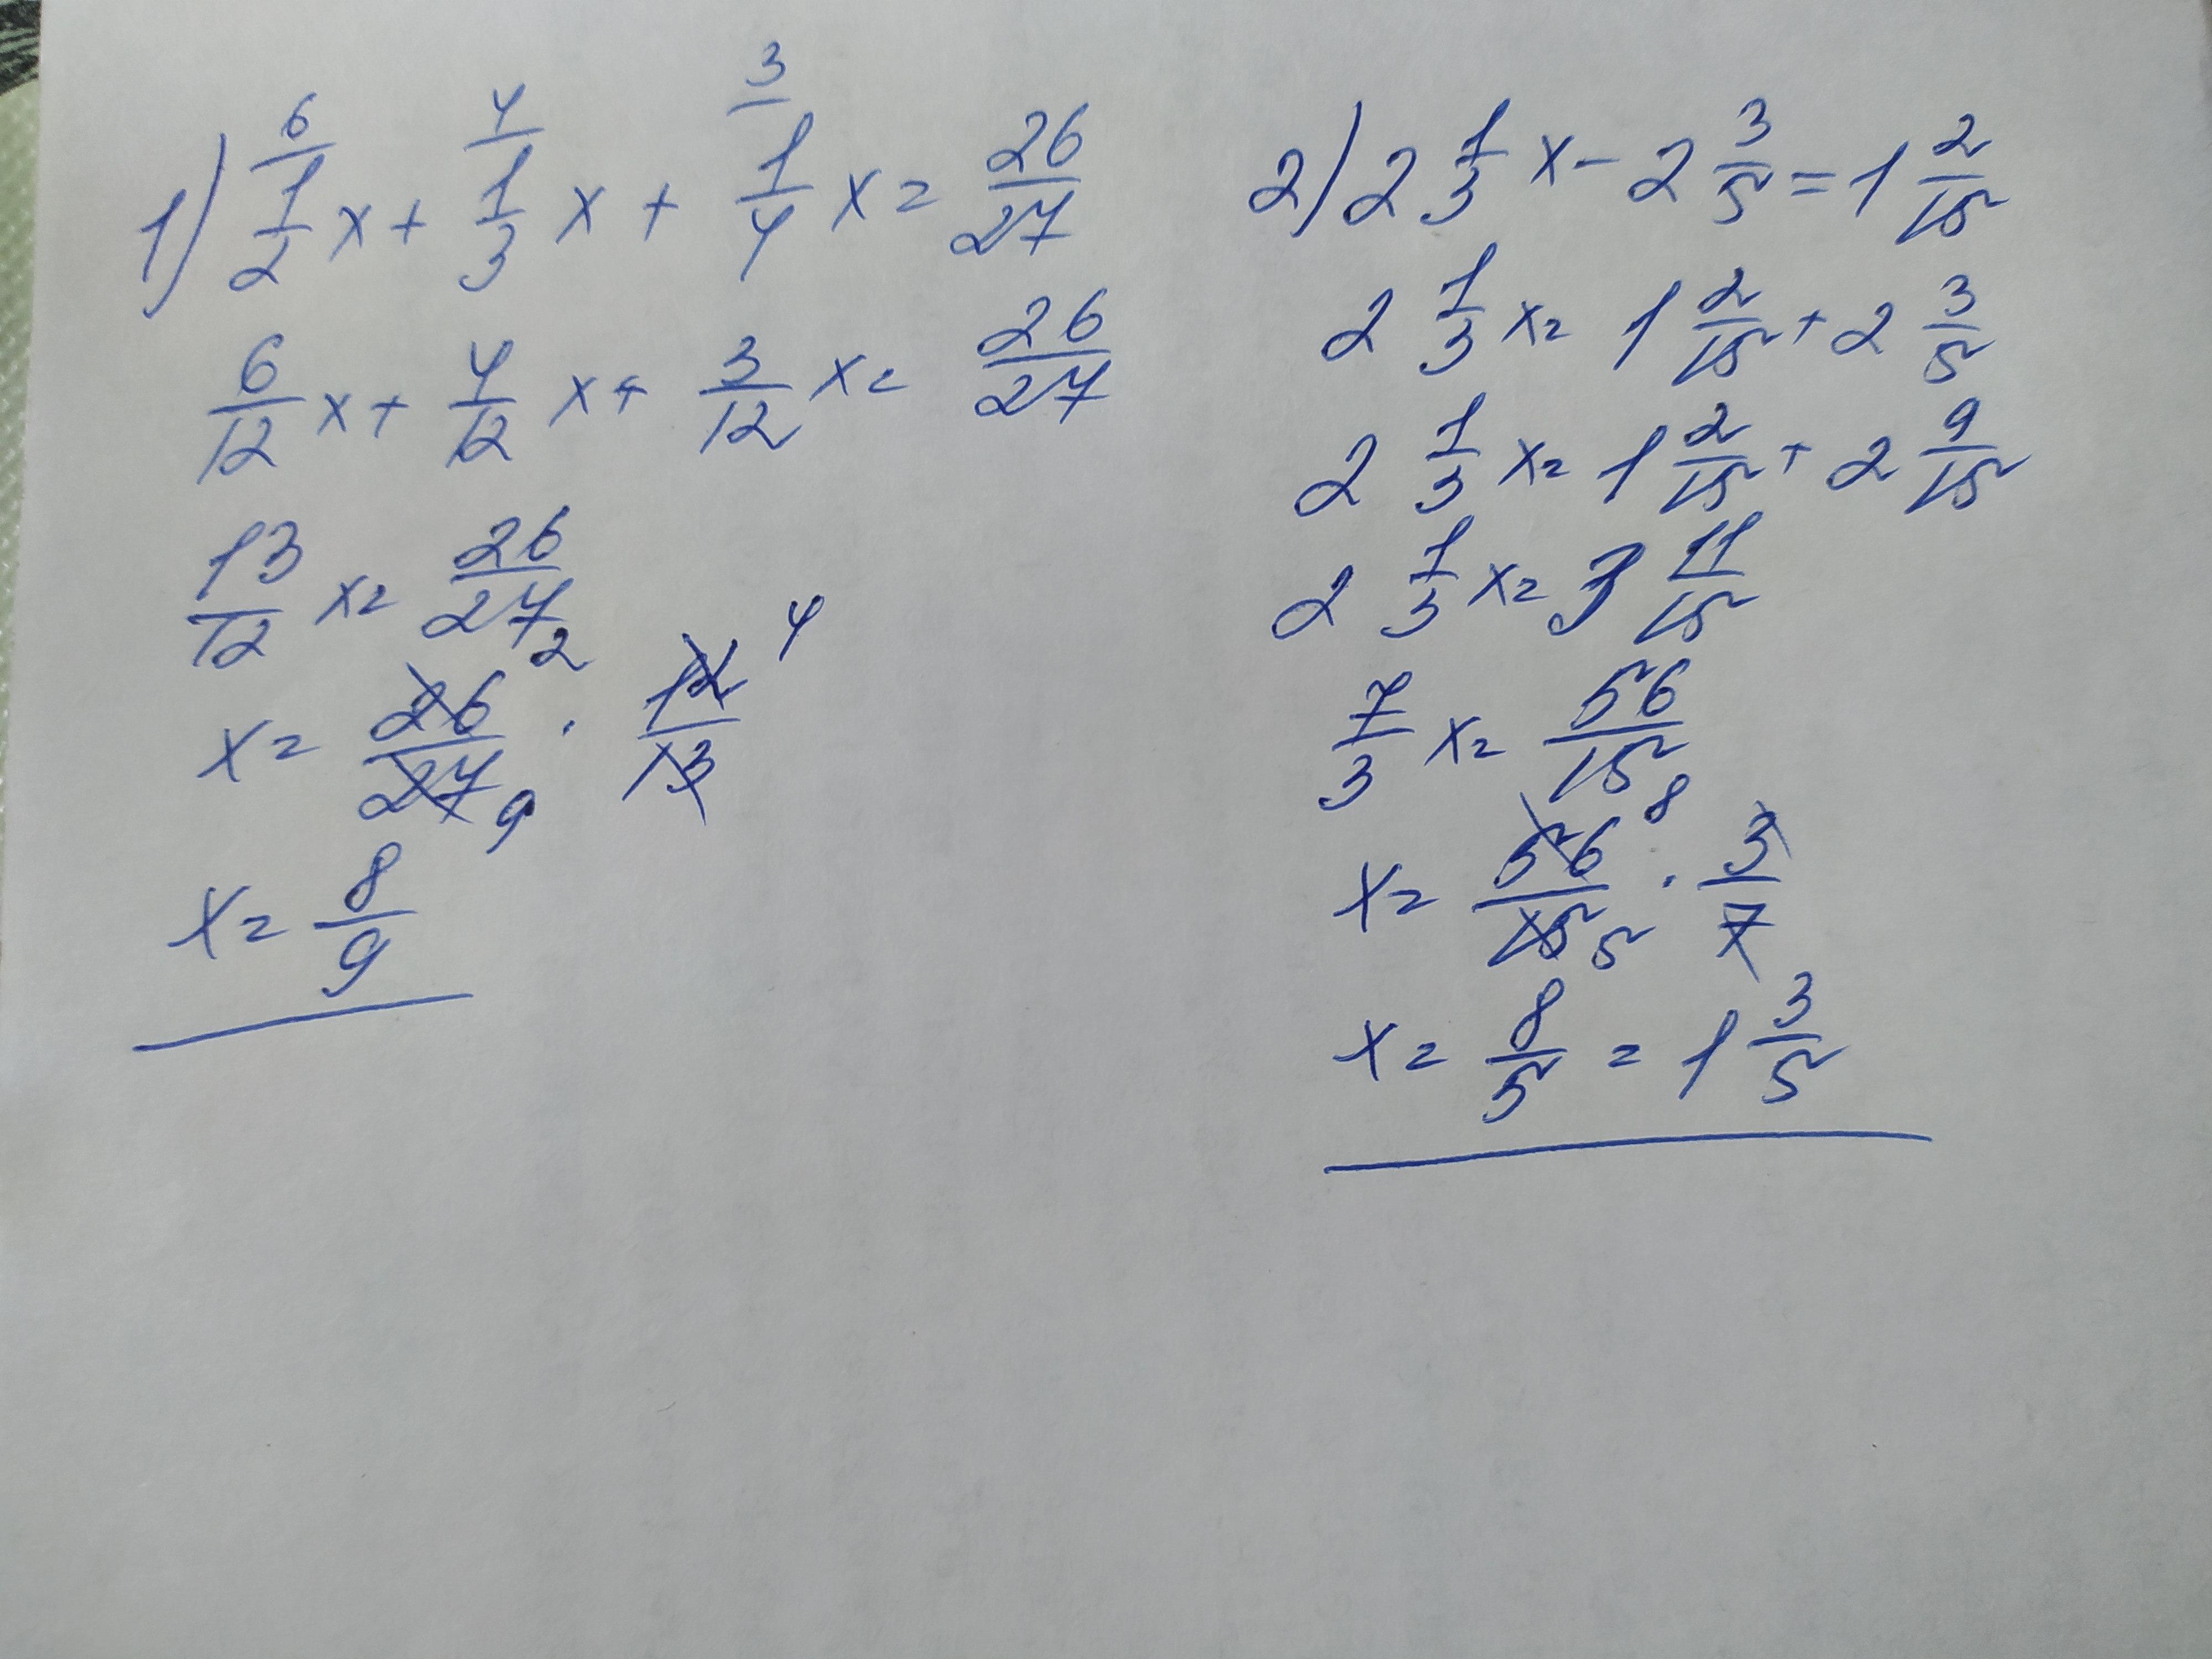 1) 6/ 4/ 3/
1/2 x + 1/3 x + 1/4 x = 26/27
6/12 x + 4/12 x + 3/12 x = 26/27
13/12 x = 26/27
x = 26/27 · 12/13 2 4 9
x = 8/9
2) 2 1/3 x - 2 3/5 = 1 2/15
2 1/3 x = 1 2/15 + 2 3/5
2 1/3 x = 1 2/15 + 2 9/15
2 1/3 x = 3 11/15
7/3 x = 56/15
x = 56/15 · 3/7 8 5
x = 8/5 = 1 3/5